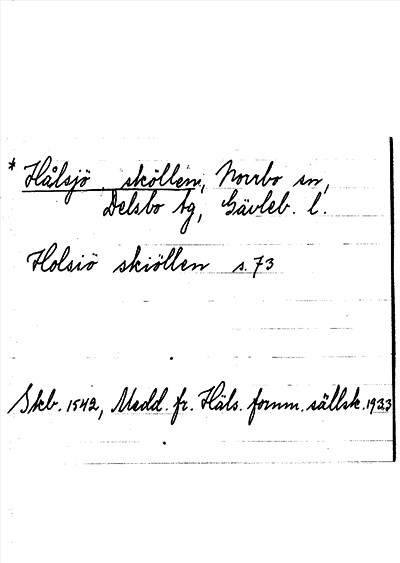 * Hålsjö sköllen, Norrbo sn,
Delsbo tg, Gävleb. l.
Holsiö skiöllen s. 73
Skb. 1542, Medd. fr. Häls. fornm. sällsk. 1933